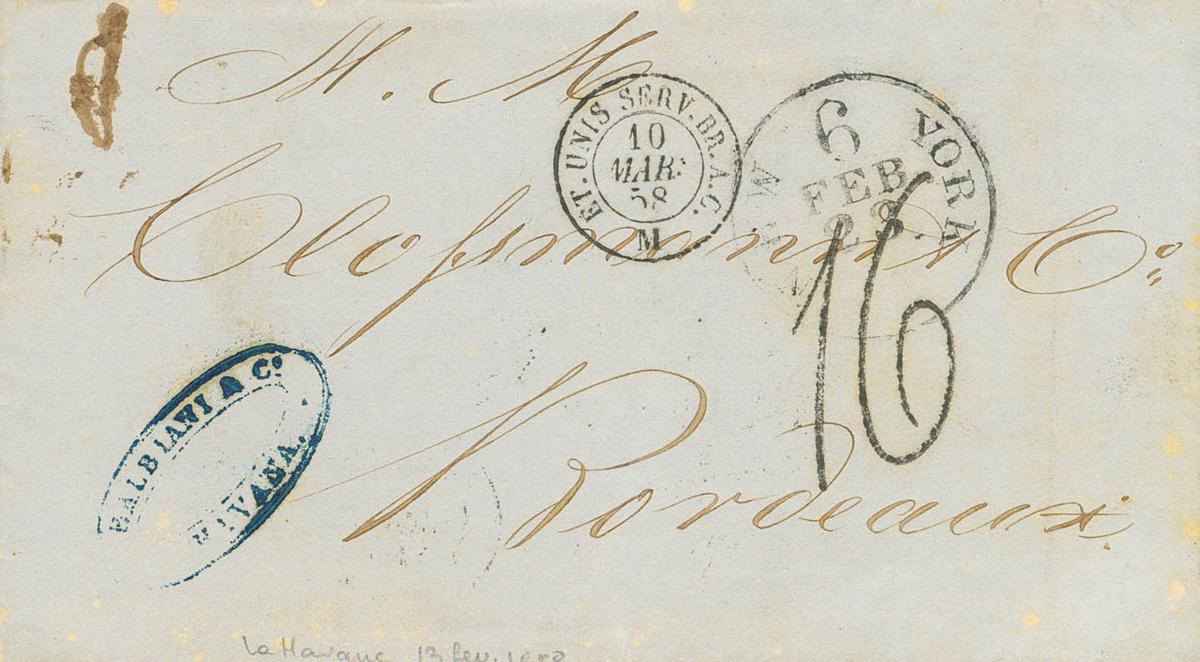 M. M.
Clossmann & Co.
Bordeaux
ET. UNIS SERV. BR. A. C.
10
MAR:
58
M
NEW YORK
6
FEB
23.
16
BALBIANI & Co.
HAVANA.
La Havane 13 fev. 1858